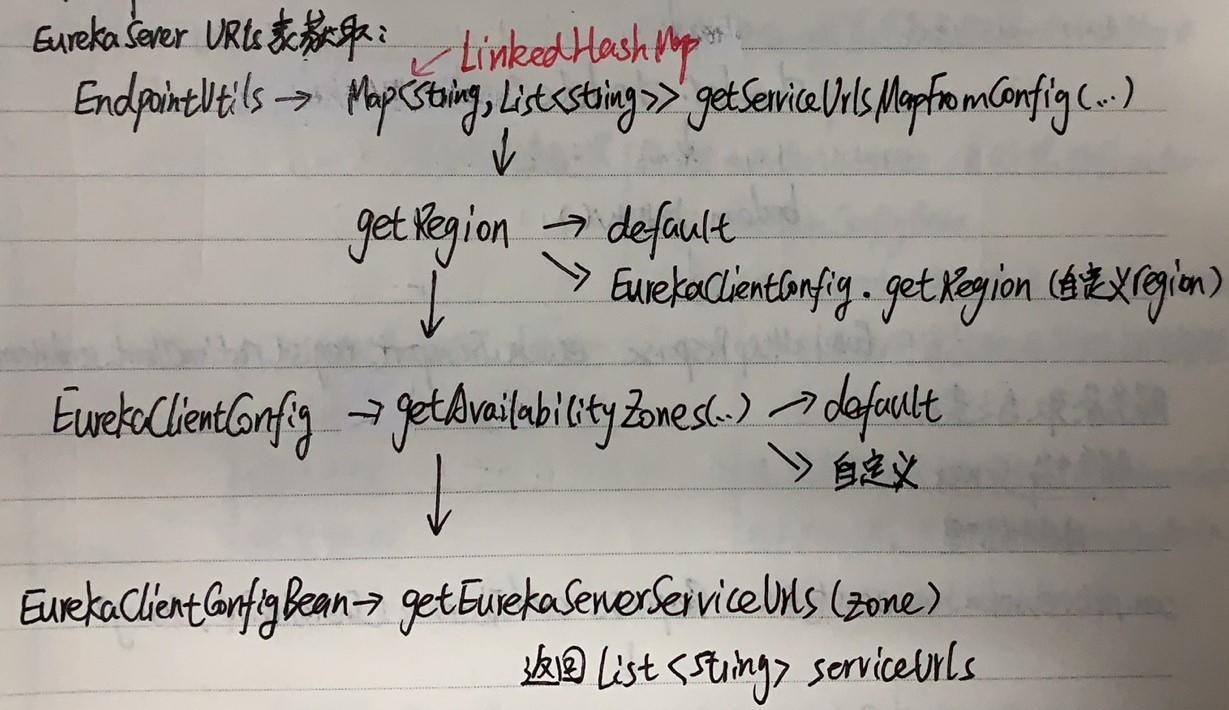 Eureka Sever URLs表获取:
LinkedHashMap
EndpointUtils → Map<String, List<String>> getServiceUrlsMapFromConfig(...)
↓
getRegion → default
↘ EurekaClientConfig.getRegion (自定义region)
↓
EurekaClientConfig → getAvailabilityZones(..) → default
↘ 自定义
↓
EurekaClientConfigBean → getEurekaServerServiceUrls (zone)
返回 List <String> serviceUrls